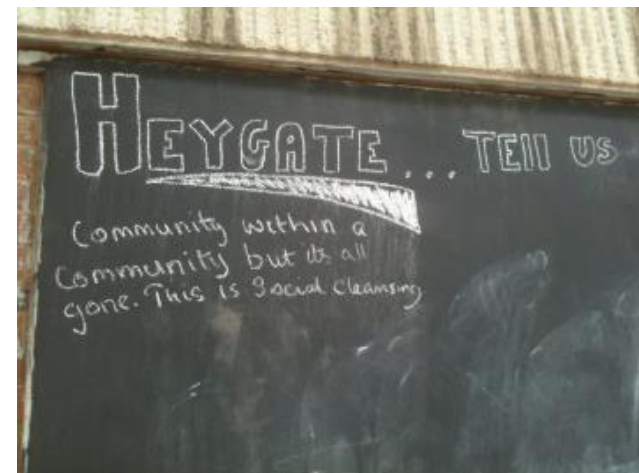 HEYGATE... TEll US
Community within a
Community but its all
gone. This is Social Cleansing